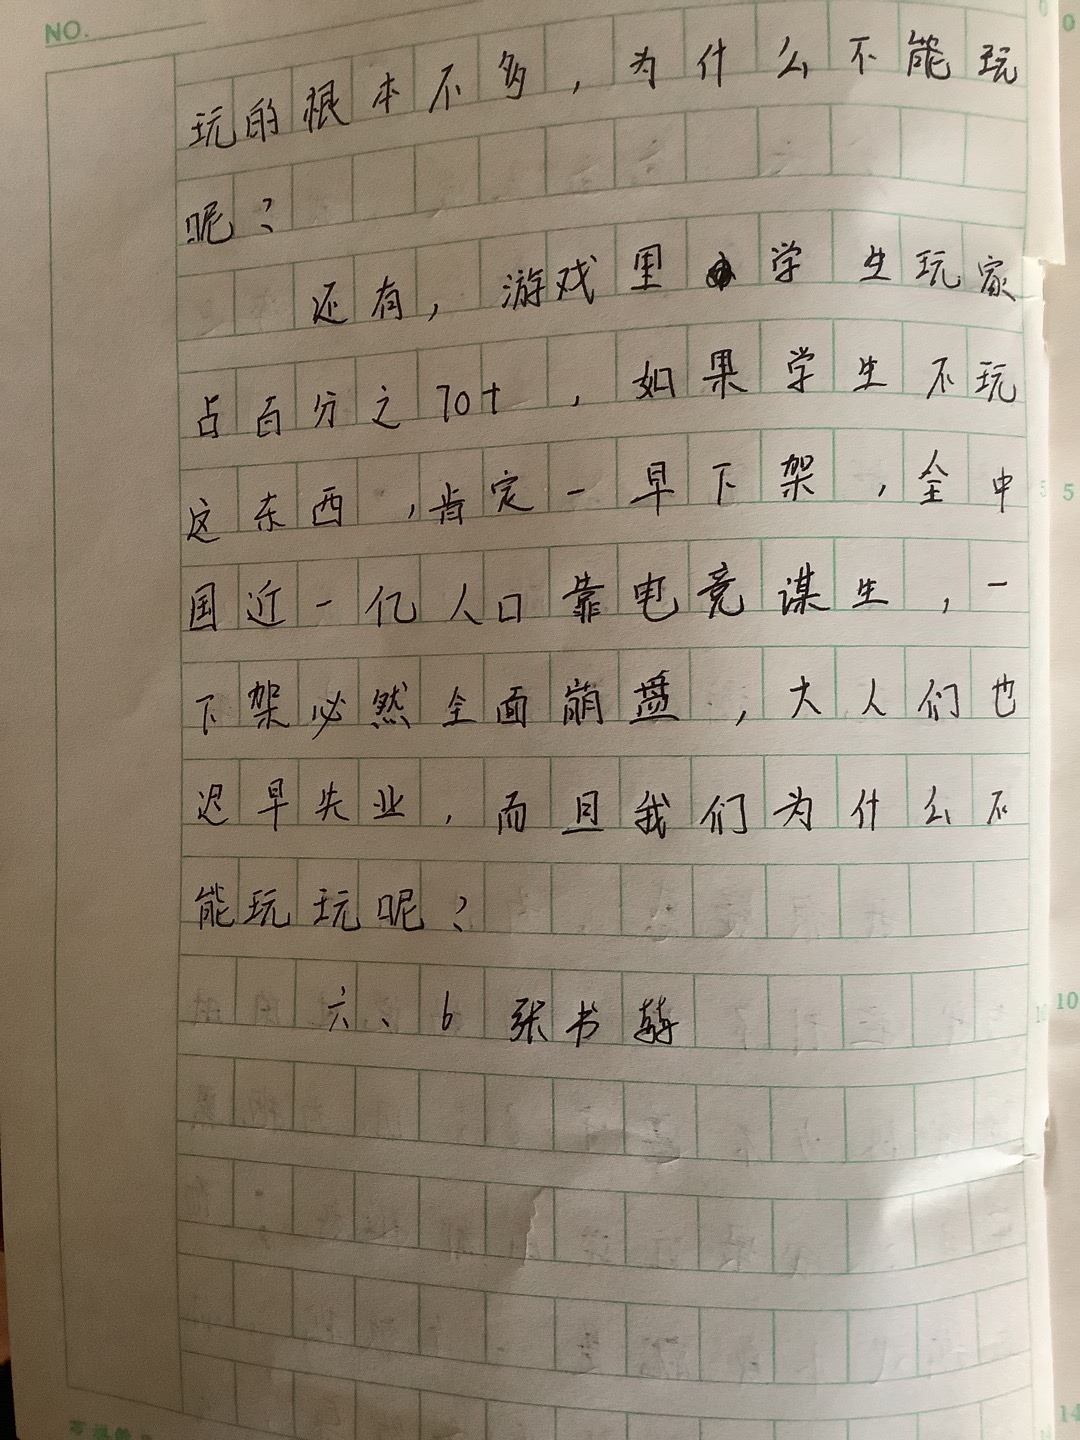 NO.
玩的根本不多，为什么不能玩
呢？
还有，游戏里学生玩家
占百分之70+，如果学生不玩
这东西，肯定一早下架，全中
国近一亿人口靠电竞谋生，一
下架必然全面崩盘，大人们也
迟早失业，而且我们为什么不
能玩玩呢？
六、6 张书
0
0
5
5
10
10
14